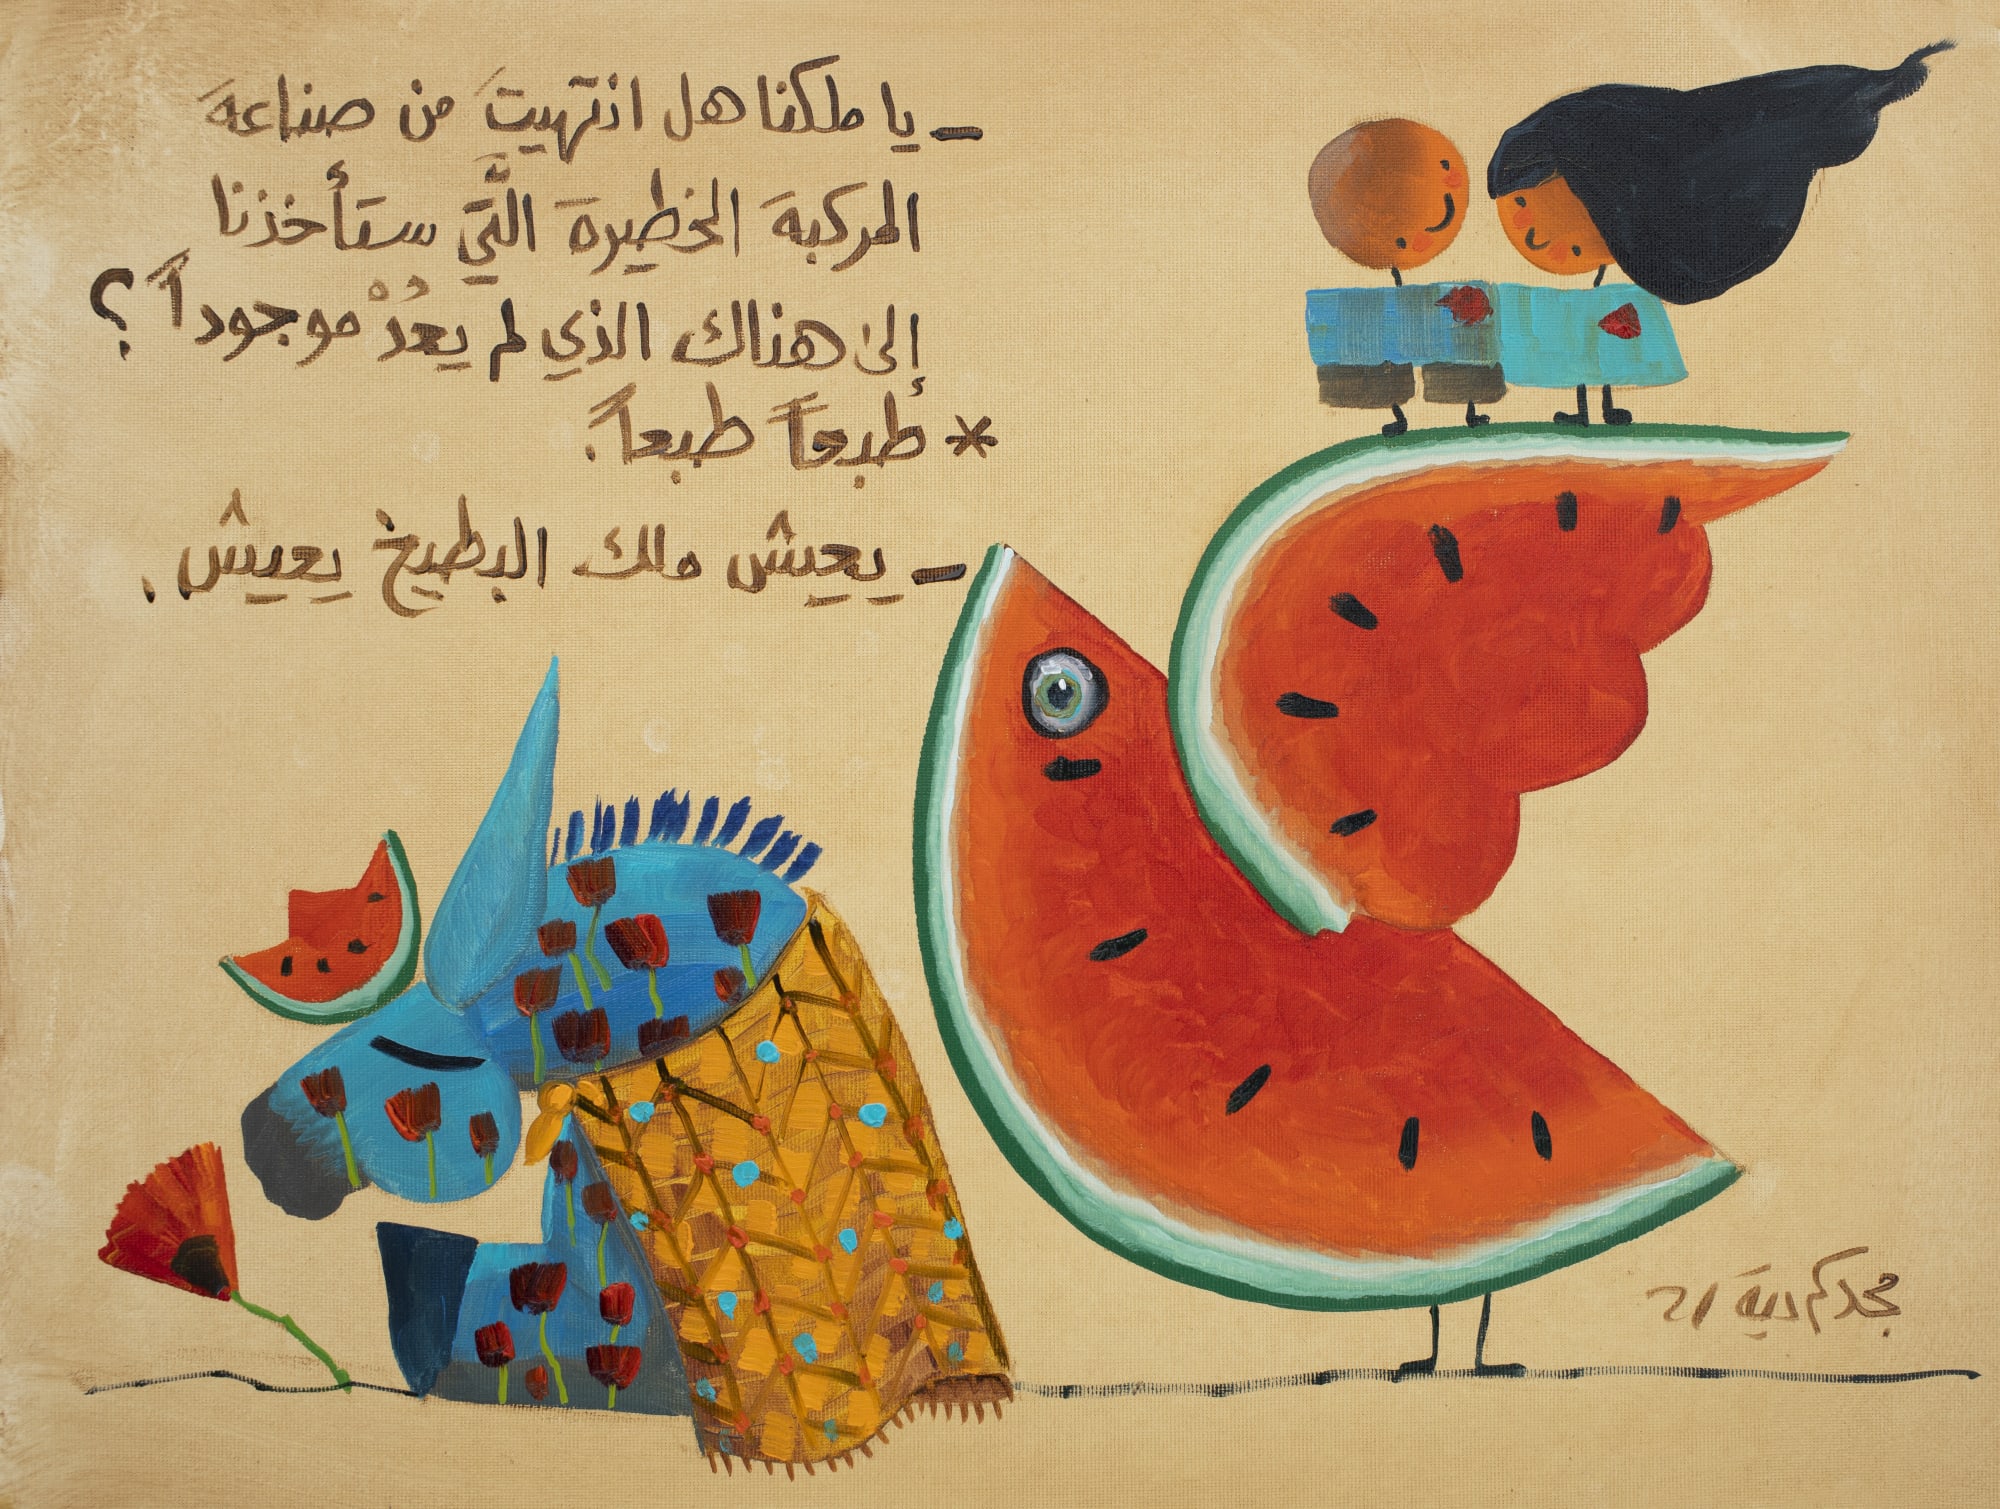 - يا ملكنا هل انتهيتَ من صناعة
المركبة الخطيرة الَّتي ستأخذنا
إلى هناك الذي لم يعُدْ موجوداً؟
* طبعاً طبعاً.
- يعيش ملك البطيخ يعيش.
مجد كم دية ٢١